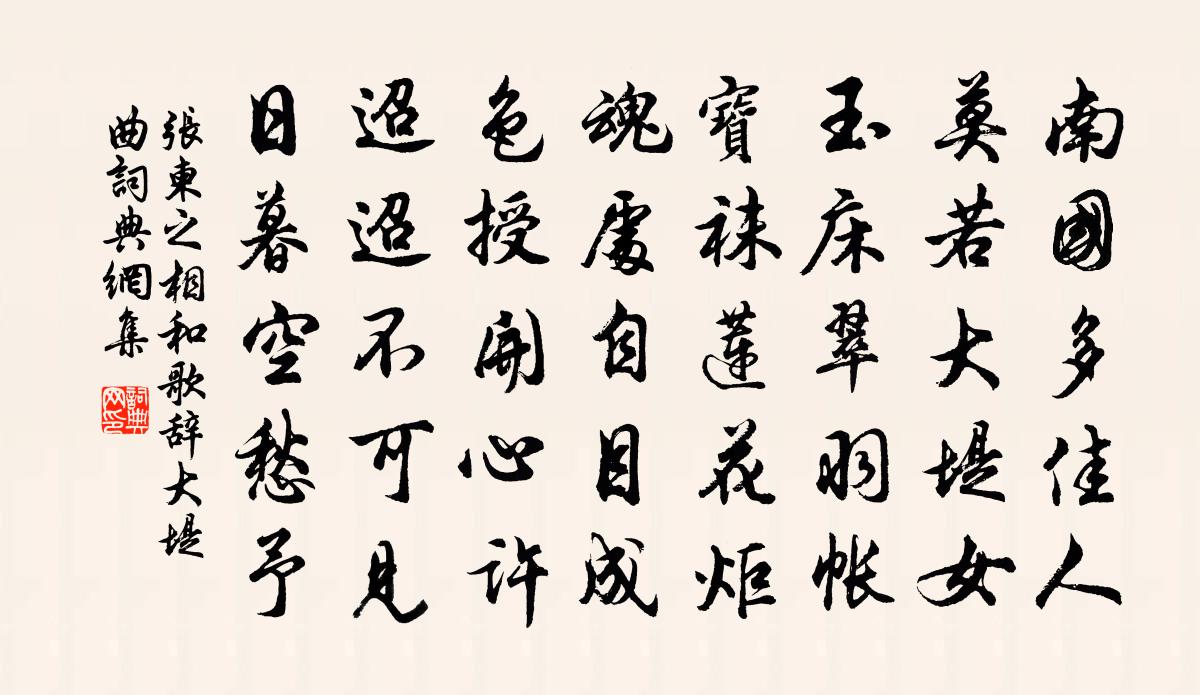 南國多佳人
莫若大堤女
玉床翠羽帳
寶袜蓮花炬
魂處自目成
色授開心許
迢迢不可見
日暮空愁予
張柬之相和歌辞大堤
曲詞典網集
詞典
网印